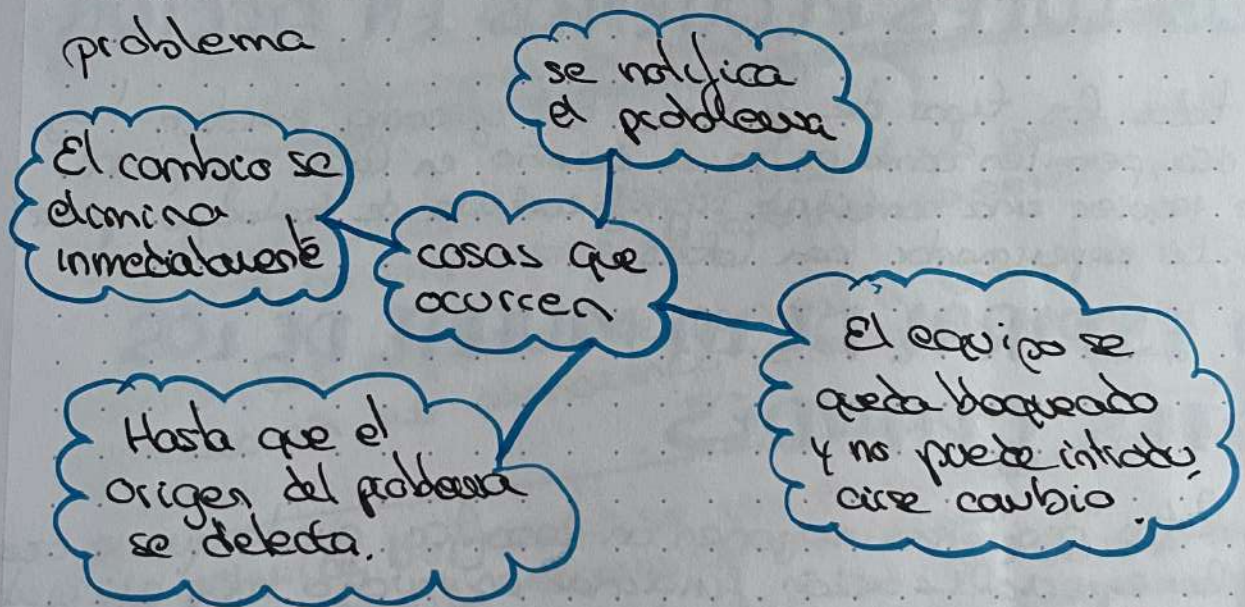 problema
se notifica
el problema
El cambio se
elimina
inmediatamente
cosas que
ocurren
El equipo se
queda bloqueado
y no puede introdu,
cirse cambio.
Hasta que el
origen del problema
se detecta.